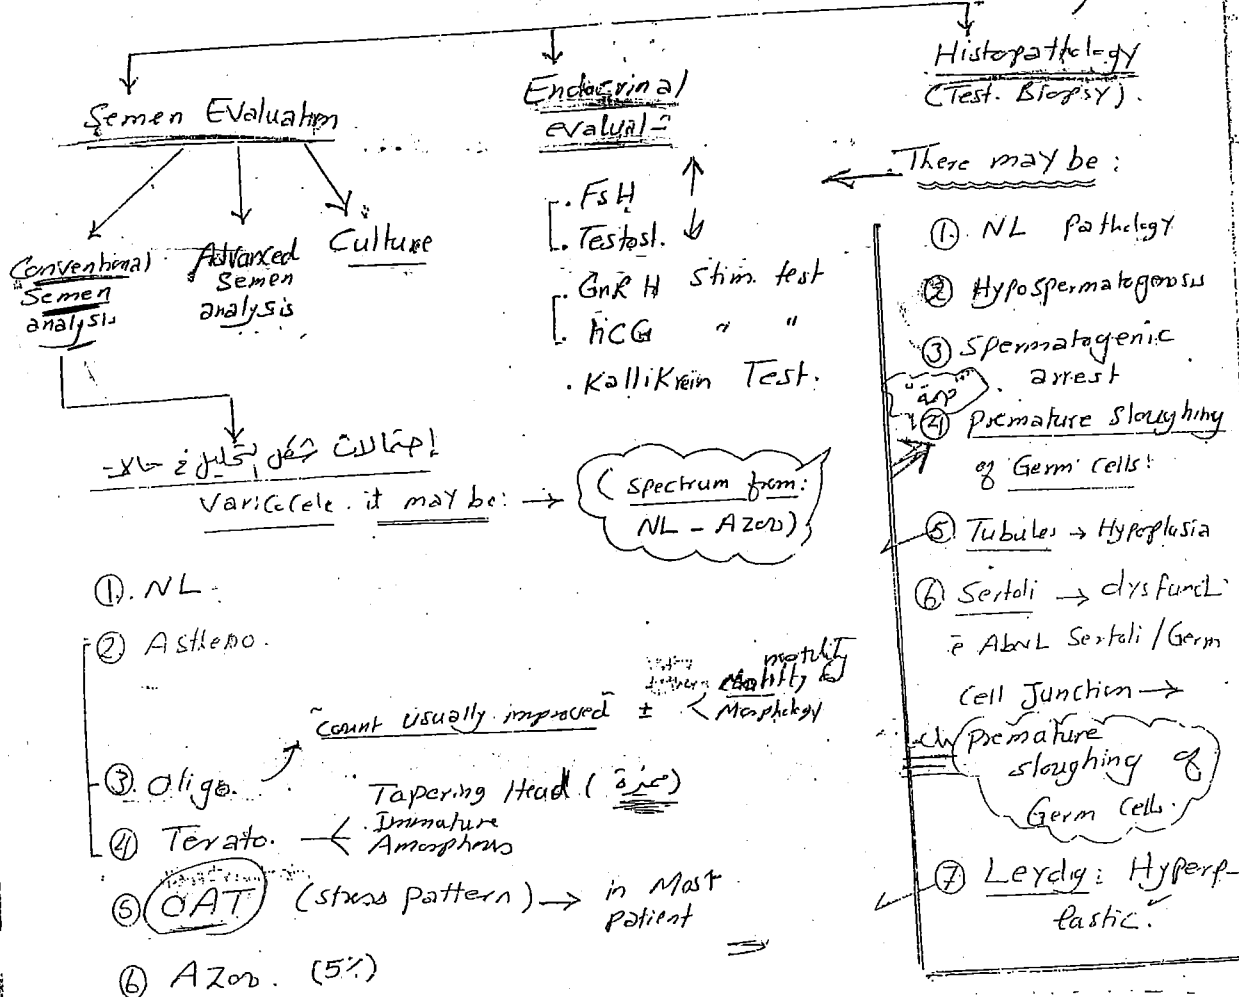 Semen Evaluation
Conventional
Semen
analysis
Advanced
Semen
analysis
Culture
Endocrinal
evaluat-
. FSH ↑
. Testost. ↓
. GnRH Stim. test
. hCG " "
. Kallikrein Test.
Histopathology
(Test. Biopsy).
There may be:
① NL pathology
② Hypospermatogenosis
③ Spermatogenic
arrest
④ Premature Sloughing
of Germ cells:
⑤ Tubules → Hyperplasia
⑥ Sertoli → dysfunct.
ē AbNL Sertoli/Germ
Cell Junction →
Premature
sloughing of
Germ Cells.
⑦ Leydig: Hyperp-
lastic.
إحتمالات شكل التحليل في حالات
Varicocele. it may be: →
(Spectrum from:
NL - Azoo)
①. NL
② Astheno.
"Count usually improved" ± < motility
Morphology
③. Oligo.
④ Terato. < Tapering Head (مميزة)
Immature
Amorphous
⑤ OAT (stress pattern) → in Most
patient
⑥ Azoo. (5%)